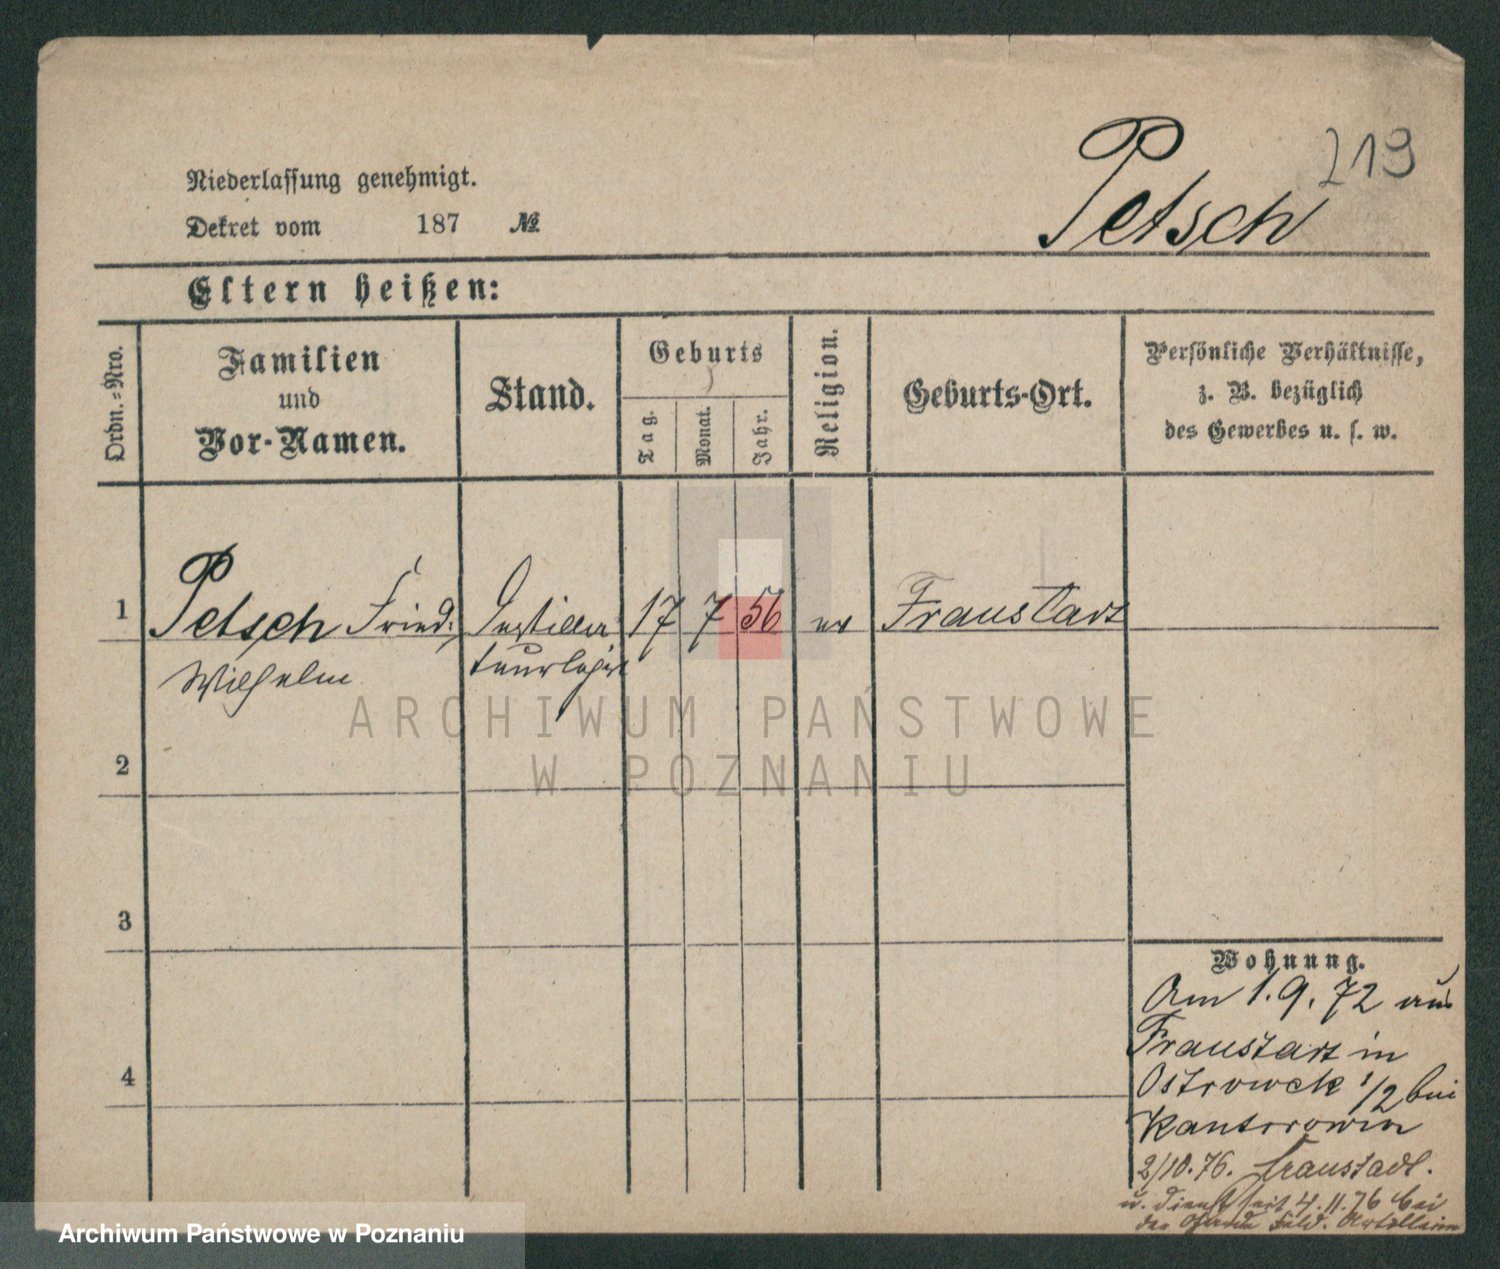 219
Petsch
Niederlassung genehmigt.
Dekret vom 187 №
Eltern heißen:
Ordn.=Nro.
Familien
und
Vor-Namen.
Stand.
Geburts
Tag.
Monat.
Jahr.
Religion.
Geburts-Ort.
Persönliche Verhältnisse,
z. B. bezüglich
des Gewerbes u. s. w.
1 Petsch Fried. 17 7 56 ev Fraustadt
Wilhelm
ARCHIWUM PAŃSTWOWE
W POZNANIU
2
3
4
Wohnung.
Am 1. 9. 72 aus
Fraustadt in
Ostrowek 1/2 bei
Kantorowicz
2/10. 76. Fraustadt.
u. dient seit 4. 11. 76 bei
der Feld. Artillerie
Archiwum Państwowe w Poznaniu